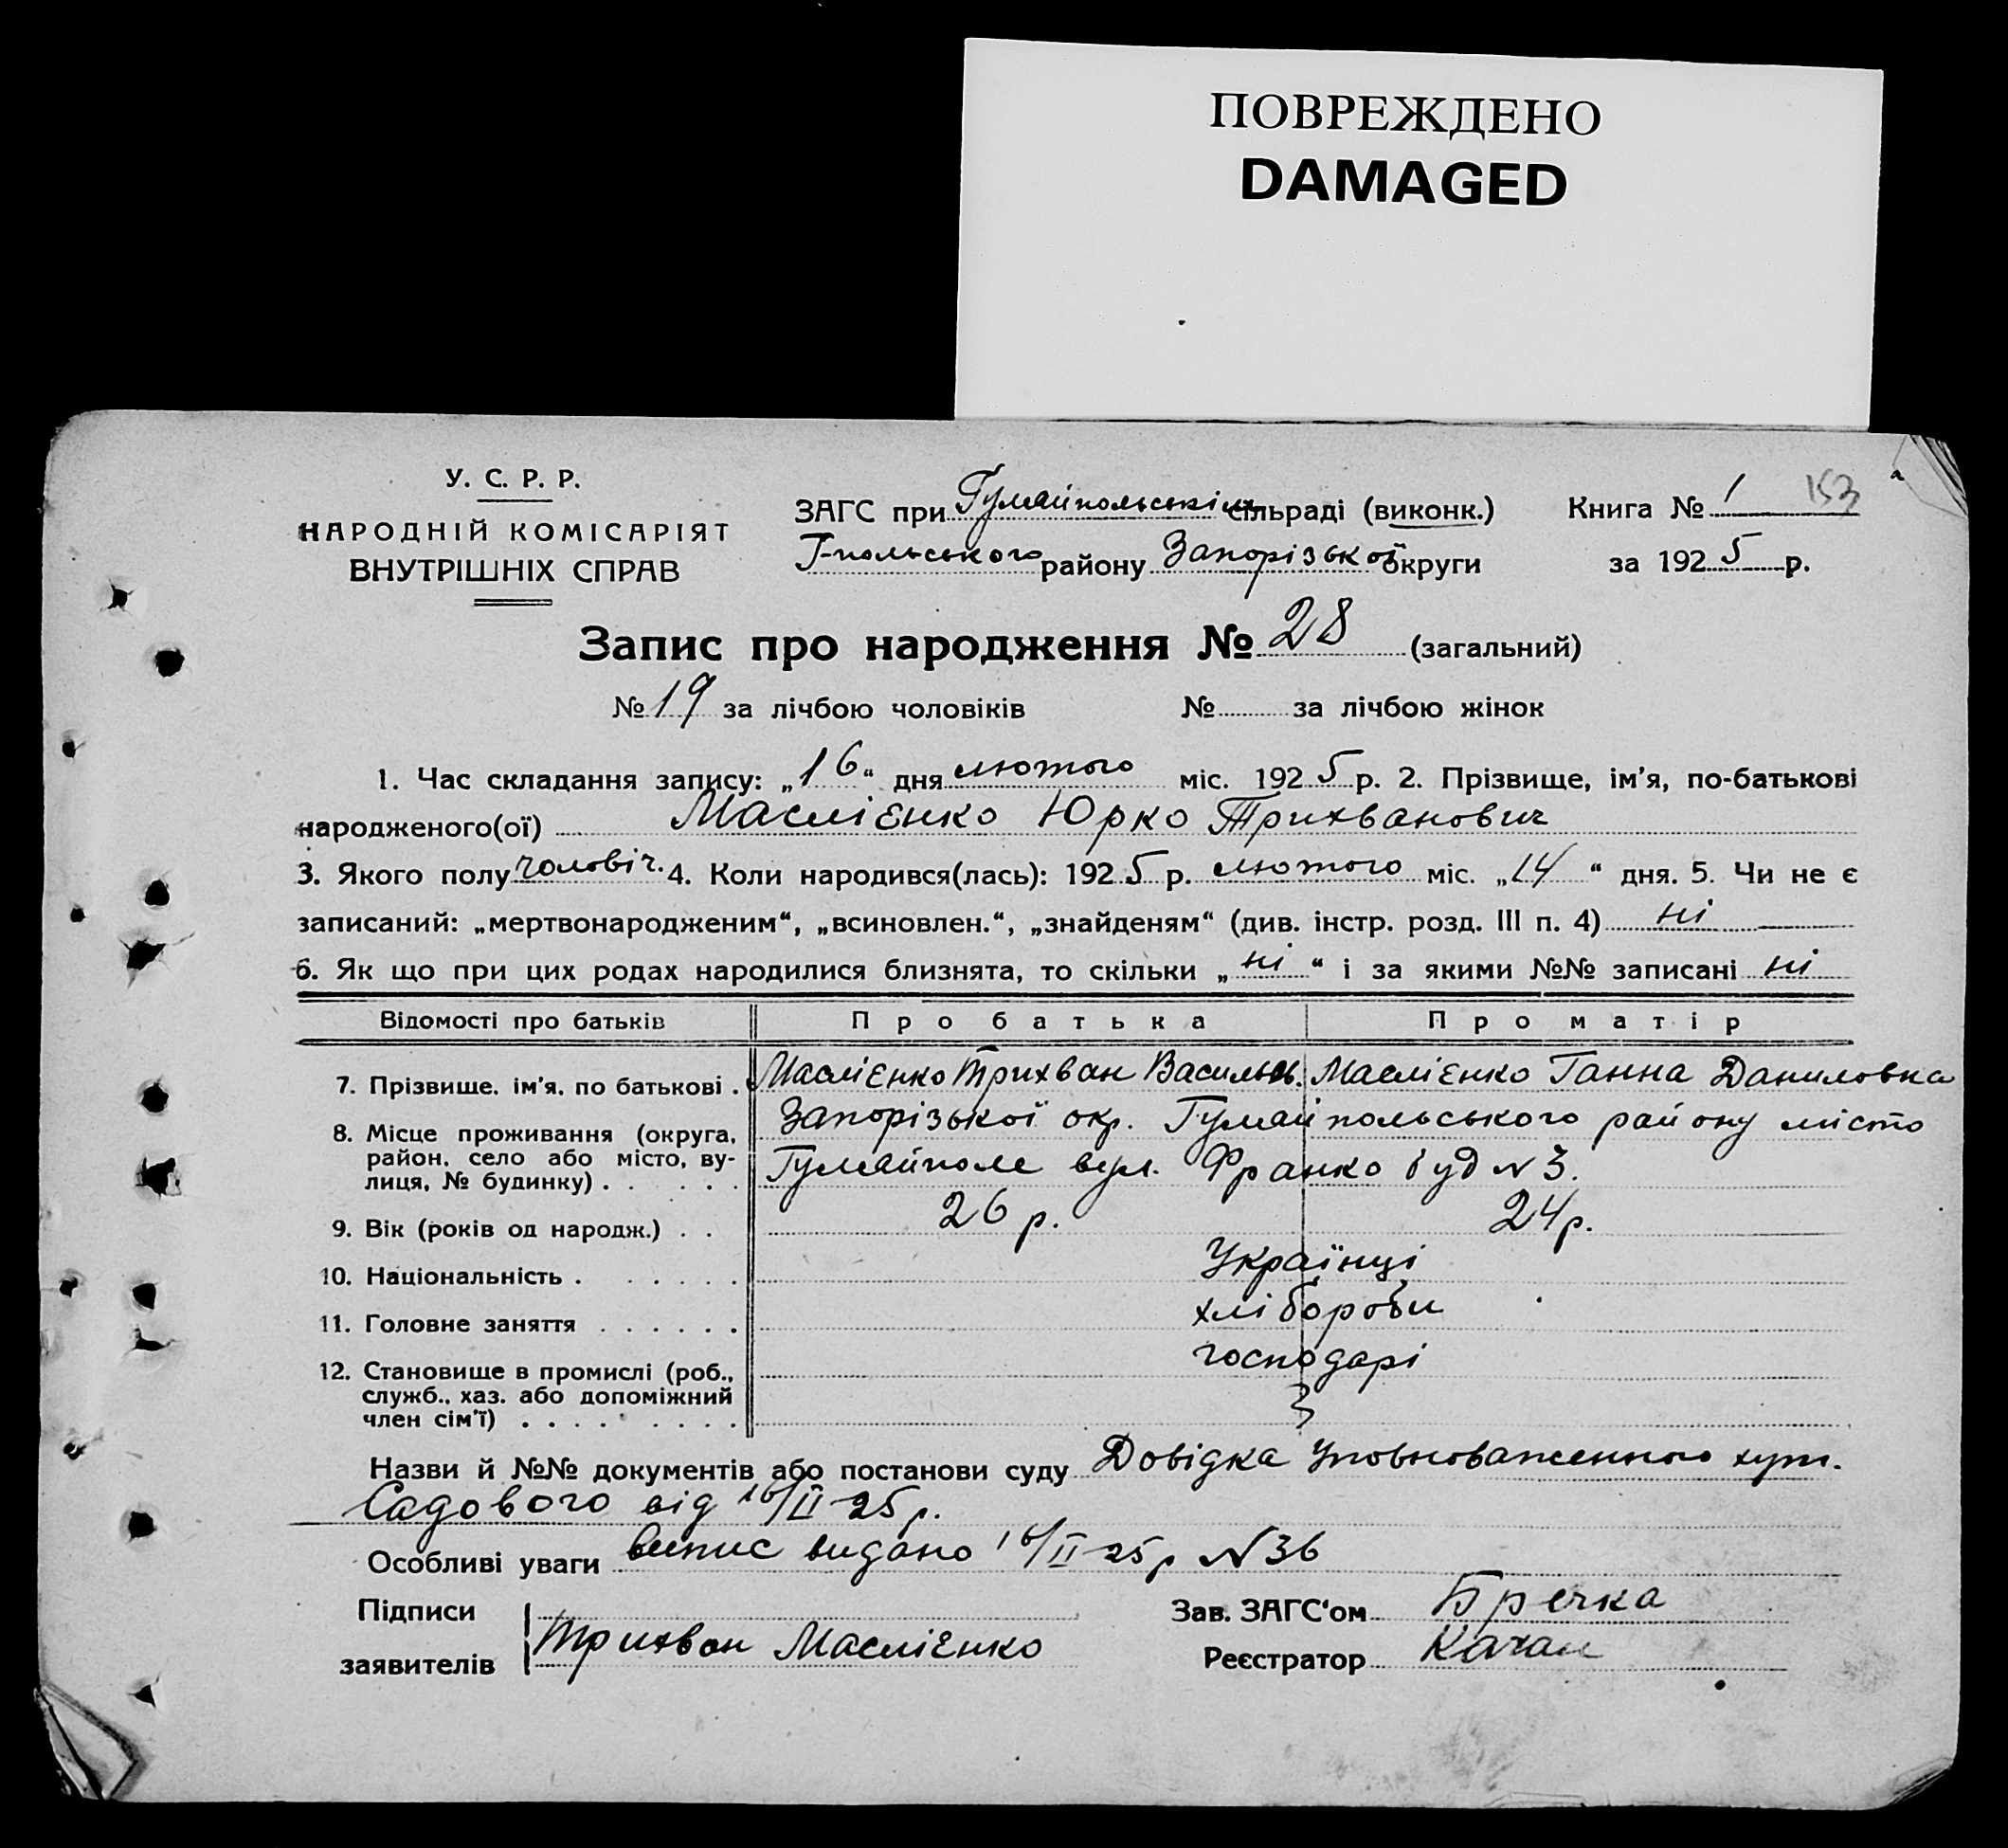 ПОВРЕЖДЕНО
DAMAGED
У. С. Р. Р.
НАРОДНІЙ КОМІСАРІЯТ
ВНУТРІШНІХ СПРАВ
ЗАГС при Гуляйпольськім сільраді (виконк.)
Г-польського району Запорізької округи
Книга № 1 153
за 1925 р.
Запис про народження № 28 (загальний)
№ 19 за лічбою чоловіків № за лічбою жінок
1. Час складання запису: „16“ дня лютого міс. 1925 р. 2. Прізвище, ім'я, по-батькові
народженого(ої) Маслієнко Юрко Трихванович
3. Якого полу чоловіч. 4. Коли народився(лась): 1925 р. лютого міс. „14“ дня. 5. Чи не є
записаний: „мертвонародженим“, „всиновлен.“, „знайденям“ (див. інстр. розд. III п. 4) ні
6. Як що при цих родах народилися близнята, то скільки „ні“ і за якими №№ записані ні
Відомості про батьків Про батька Про матір
7. Прізвище, ім'я, по батькові . Маслієнко Трихван Васильов. Маслієнко Ганна Даниловна
8. Місце проживання (округа, район, село або місто, вулиця, № будинку) . . . . . Запорізької окр. Гуляйпольського району місто
Гуляйполе вул. Франко буд N 3.
9. Вік (років од народж.) . . 26 р. 24 р.
10. Національність . . . . . . Українці
11. Головне заняття . . . . . . хлібороби
12. Становище в промислі (роб., служб., хаз. або допоміжний член сім'ї) . . . . . . . . . господарі
Назви й №№ документів або постанови суду Довідка Уповноваженного хут.
Садового від 16/II-25 р.
Особливі уваги випис видано 16/II-25 р N 36
Підписи
заявителів Трихван Маслієнко
Зав. ЗАГС'ом Бречка
Реєстратор Качан